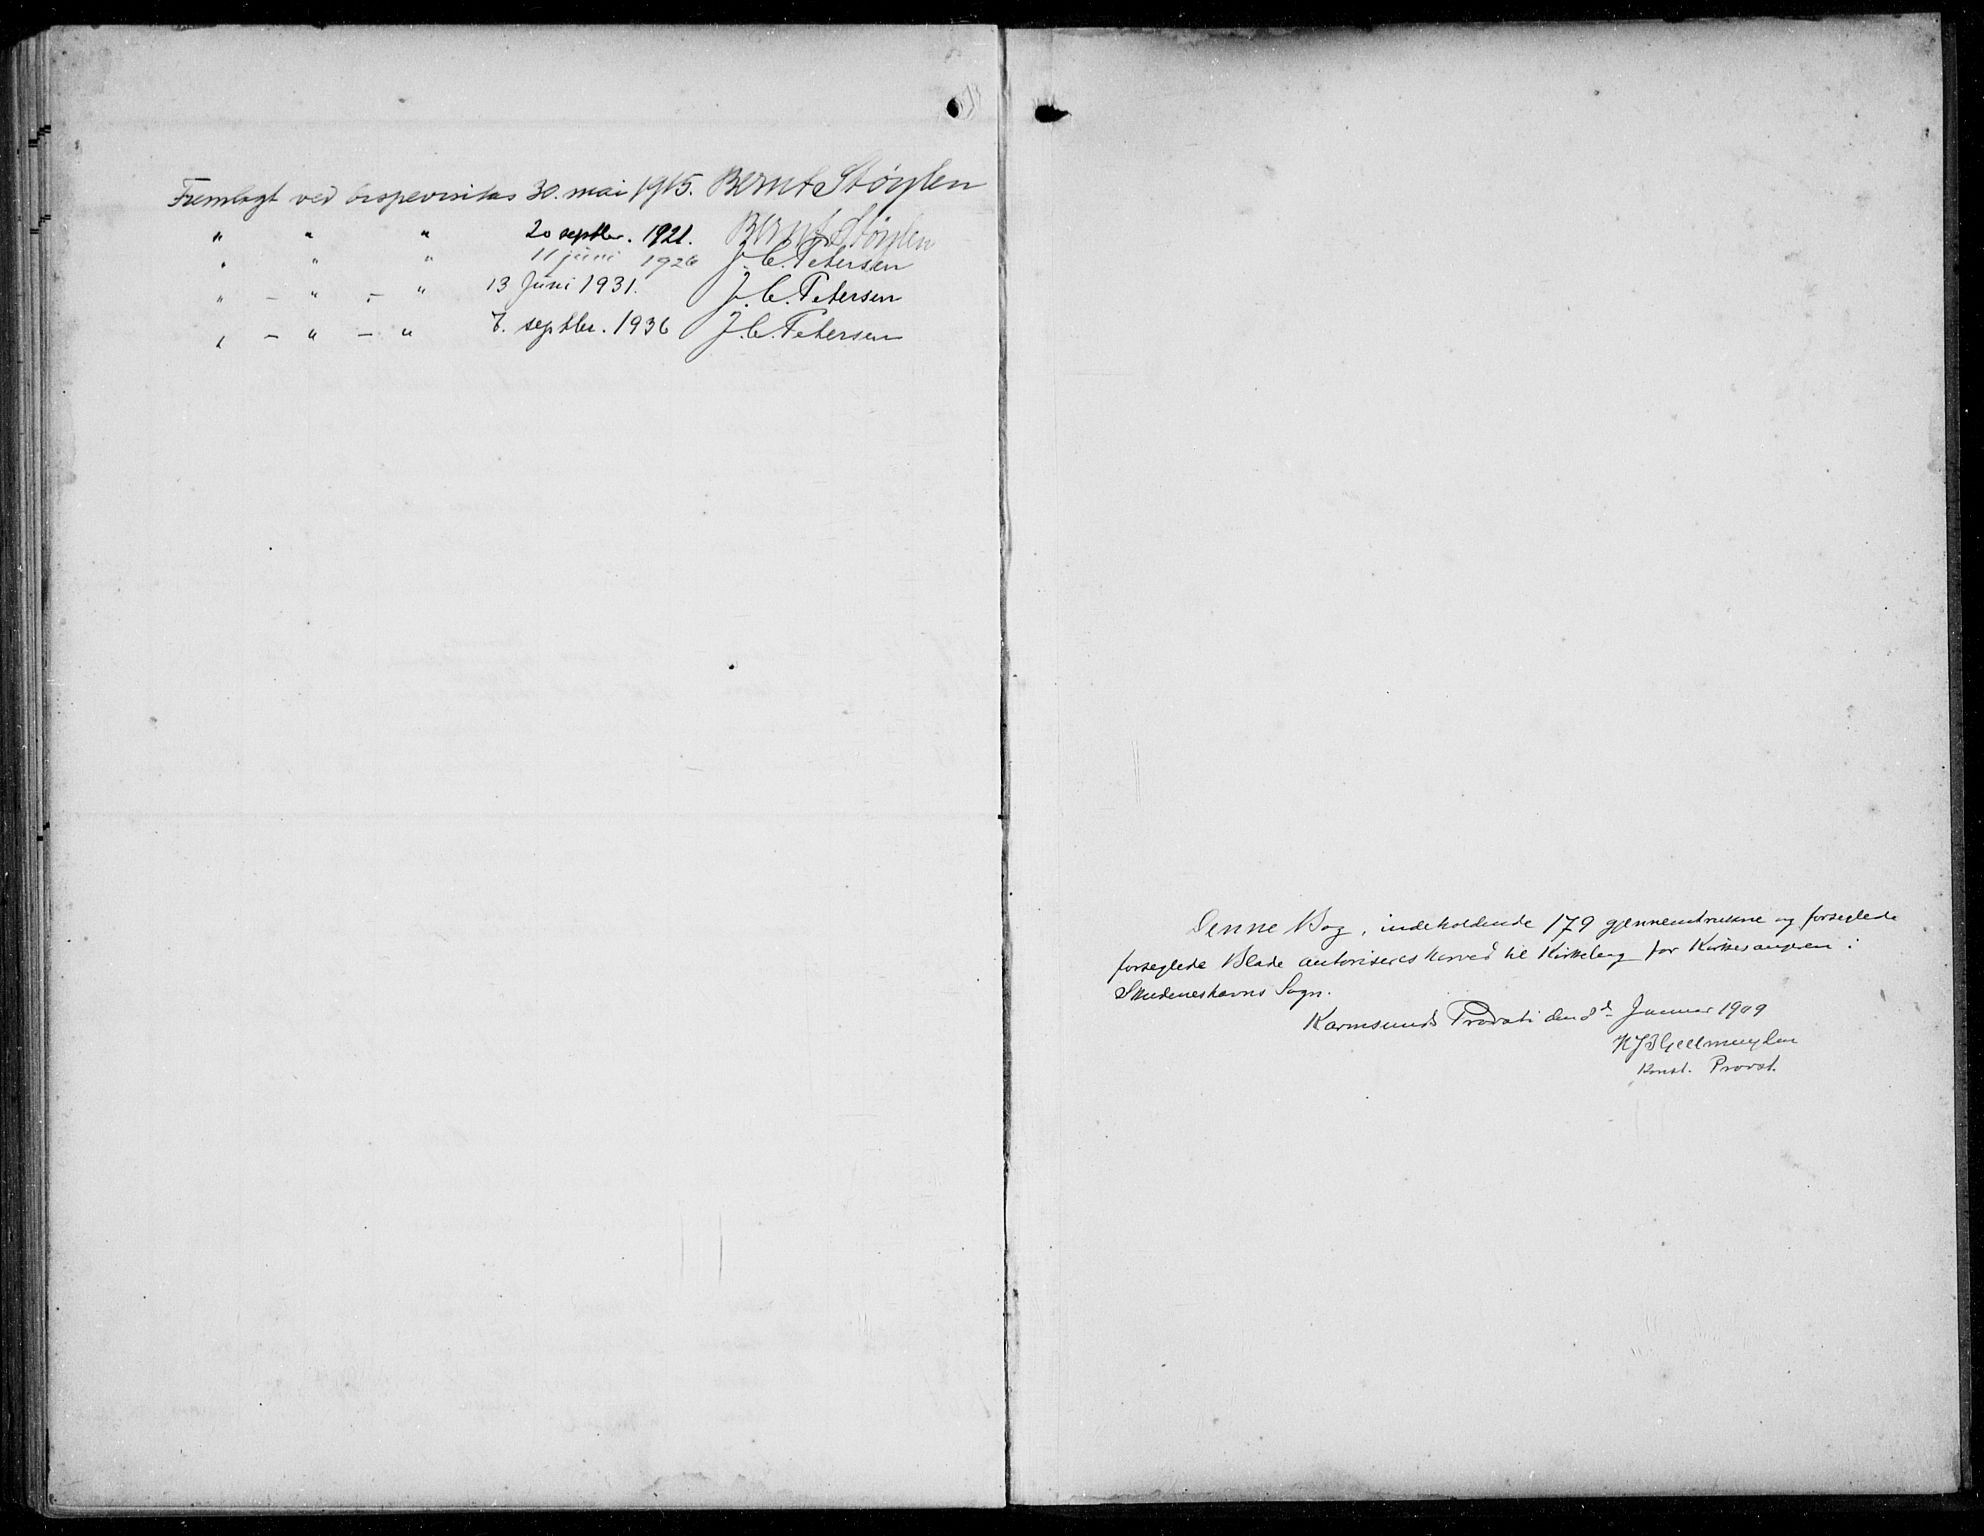 Fremlagt ved bispevisitas 30. mai 1915. Bernt Støylen
" " " 20 septbr. 1921. Bernt Støylen
" " " 11 juni 1926 J. C. Petersen
" – " – " 13 Juni 1931. J. C. Petersen
" – " – " 7. septbr. 1936 J. C. Petersen
Denne Bog, indeholdende 179 gjennemtrukne og forseglede
forseglede Blade autoriseres herved til Kirkebog for Kirkesangeren i
Skudeneshavns Sogn.
Karmsunds Provsti den 8d Januar 1909
Gjellmuyden
Konst. Provst.